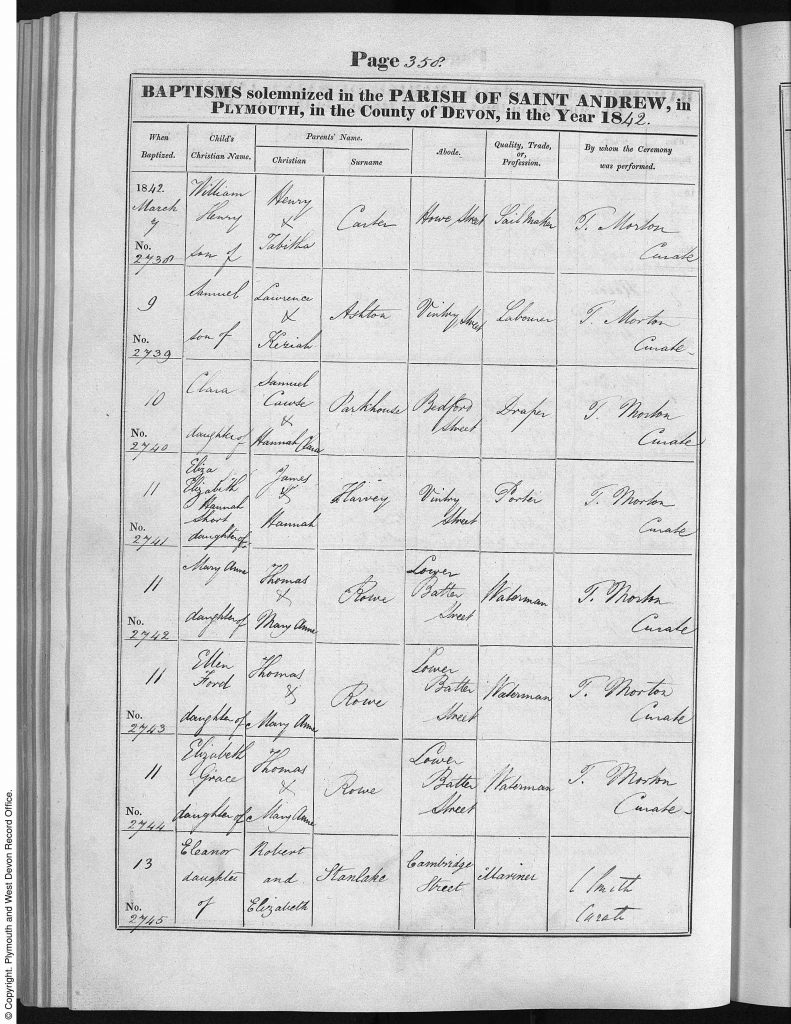 Page 358.
BAPTISMS solemnized in the PARISH OF SAINT ANDREW, in
PLYMOUTH, in the County of DEVON, in the Year 1842.
When Baptized. Child's Christian Name. Parents' Name. Abode. Quality, Trade, or, Profession. By whom the Ceremony was performed.
Christian Surname
1842. March 7 No. 2738 William Henry son of Henry & Tabitha Carter Howe Street Sail Maker T. Morton Curate
9 No. 2739 Samuel son of Lawrence & Keziah Ashton Vintry Street Labourer T. Morton Curate
10 No. 2740 Clara daughter of Samuel Cawse & Hannah Clara Parkhouse Bedford Street Draper T. Morton Curate
11 No. 2741 Eliza Elizabeth Hannah Short daughter of James & Hannah Harvey Vintry Street Porter T. Morton Curate
11 No. 2742 Mary Anne daughter of Thomas & Mary Anne Rowe Lower Batter Street Waterman T. Morton Curate
11 No. 2743 Ellen Ford daughter of Thomas & Mary Anne Rowe Lower Batter Street Waterman T. Morton Curate
11 No. 2744 Elizabeth Grace daughter of Thomas & Mary Anne Rowe Lower Batter Street Waterman T. Morton Curate
13 No. 2745 Eleanor daughter of Robert and Elizabeth Stanlake Cambridge Street Mariner C Smith Curate
© Copyright. Plymouth and West Devon Record Office.